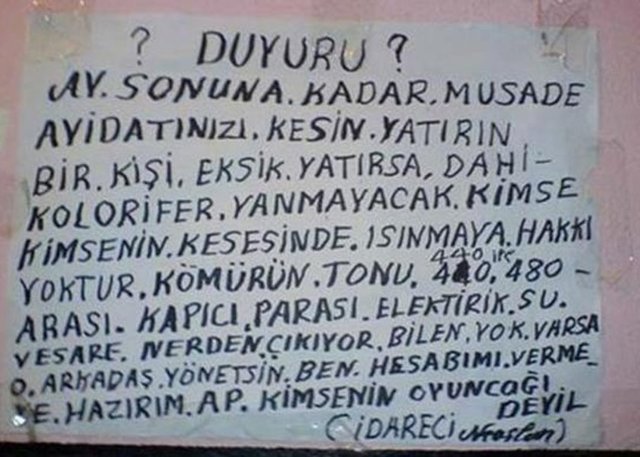 ? DUYURU ?
AY. SONUNA. KADAR. MUSADE
AYIDATINIZI. KESİN. YATIRIN
BİR. KİŞİ. EKSİK. YATIRSA, DAHİ-
KOLORİFER. YANMAYACAK. KİMSE
KİMSENİN. KESESİNDE. ISINMAYA. HAKKI
YOKTUR. KÖMÜRÜN. TONU. 440 ile 480 -
ARASI. KAPICI. PARASI. ELEKTİRİK. SU.
VESARE. NERDEN. ÇIKIYOR. BİLEN. YOK. VARSA
O. ARKADAŞ. YÖNETSİN. BEN. HESABIMI. VERME_
YE. HAZIRIM. AP. KİMSENİN OYUNCAĞI
DEYİL
(İDARECİ )